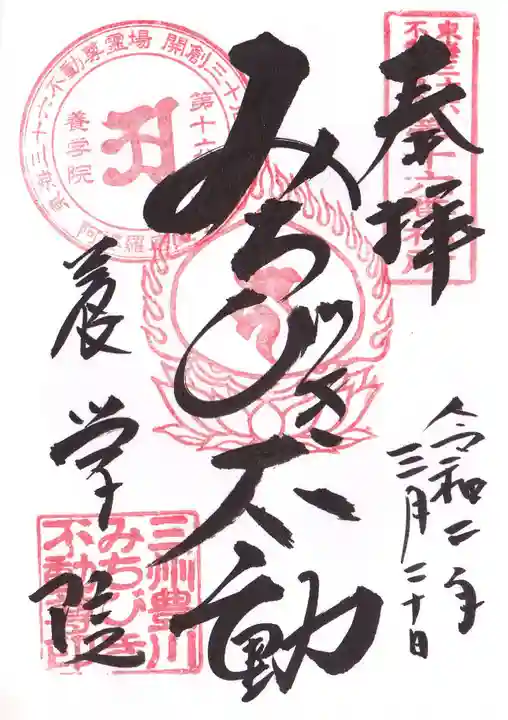 奉拝
令和二年
三月二十日
みちびき不動
養学院
三州豊川
みちびき
不動
東海三十六不動尊霊場 開創三十
第十六
養学院